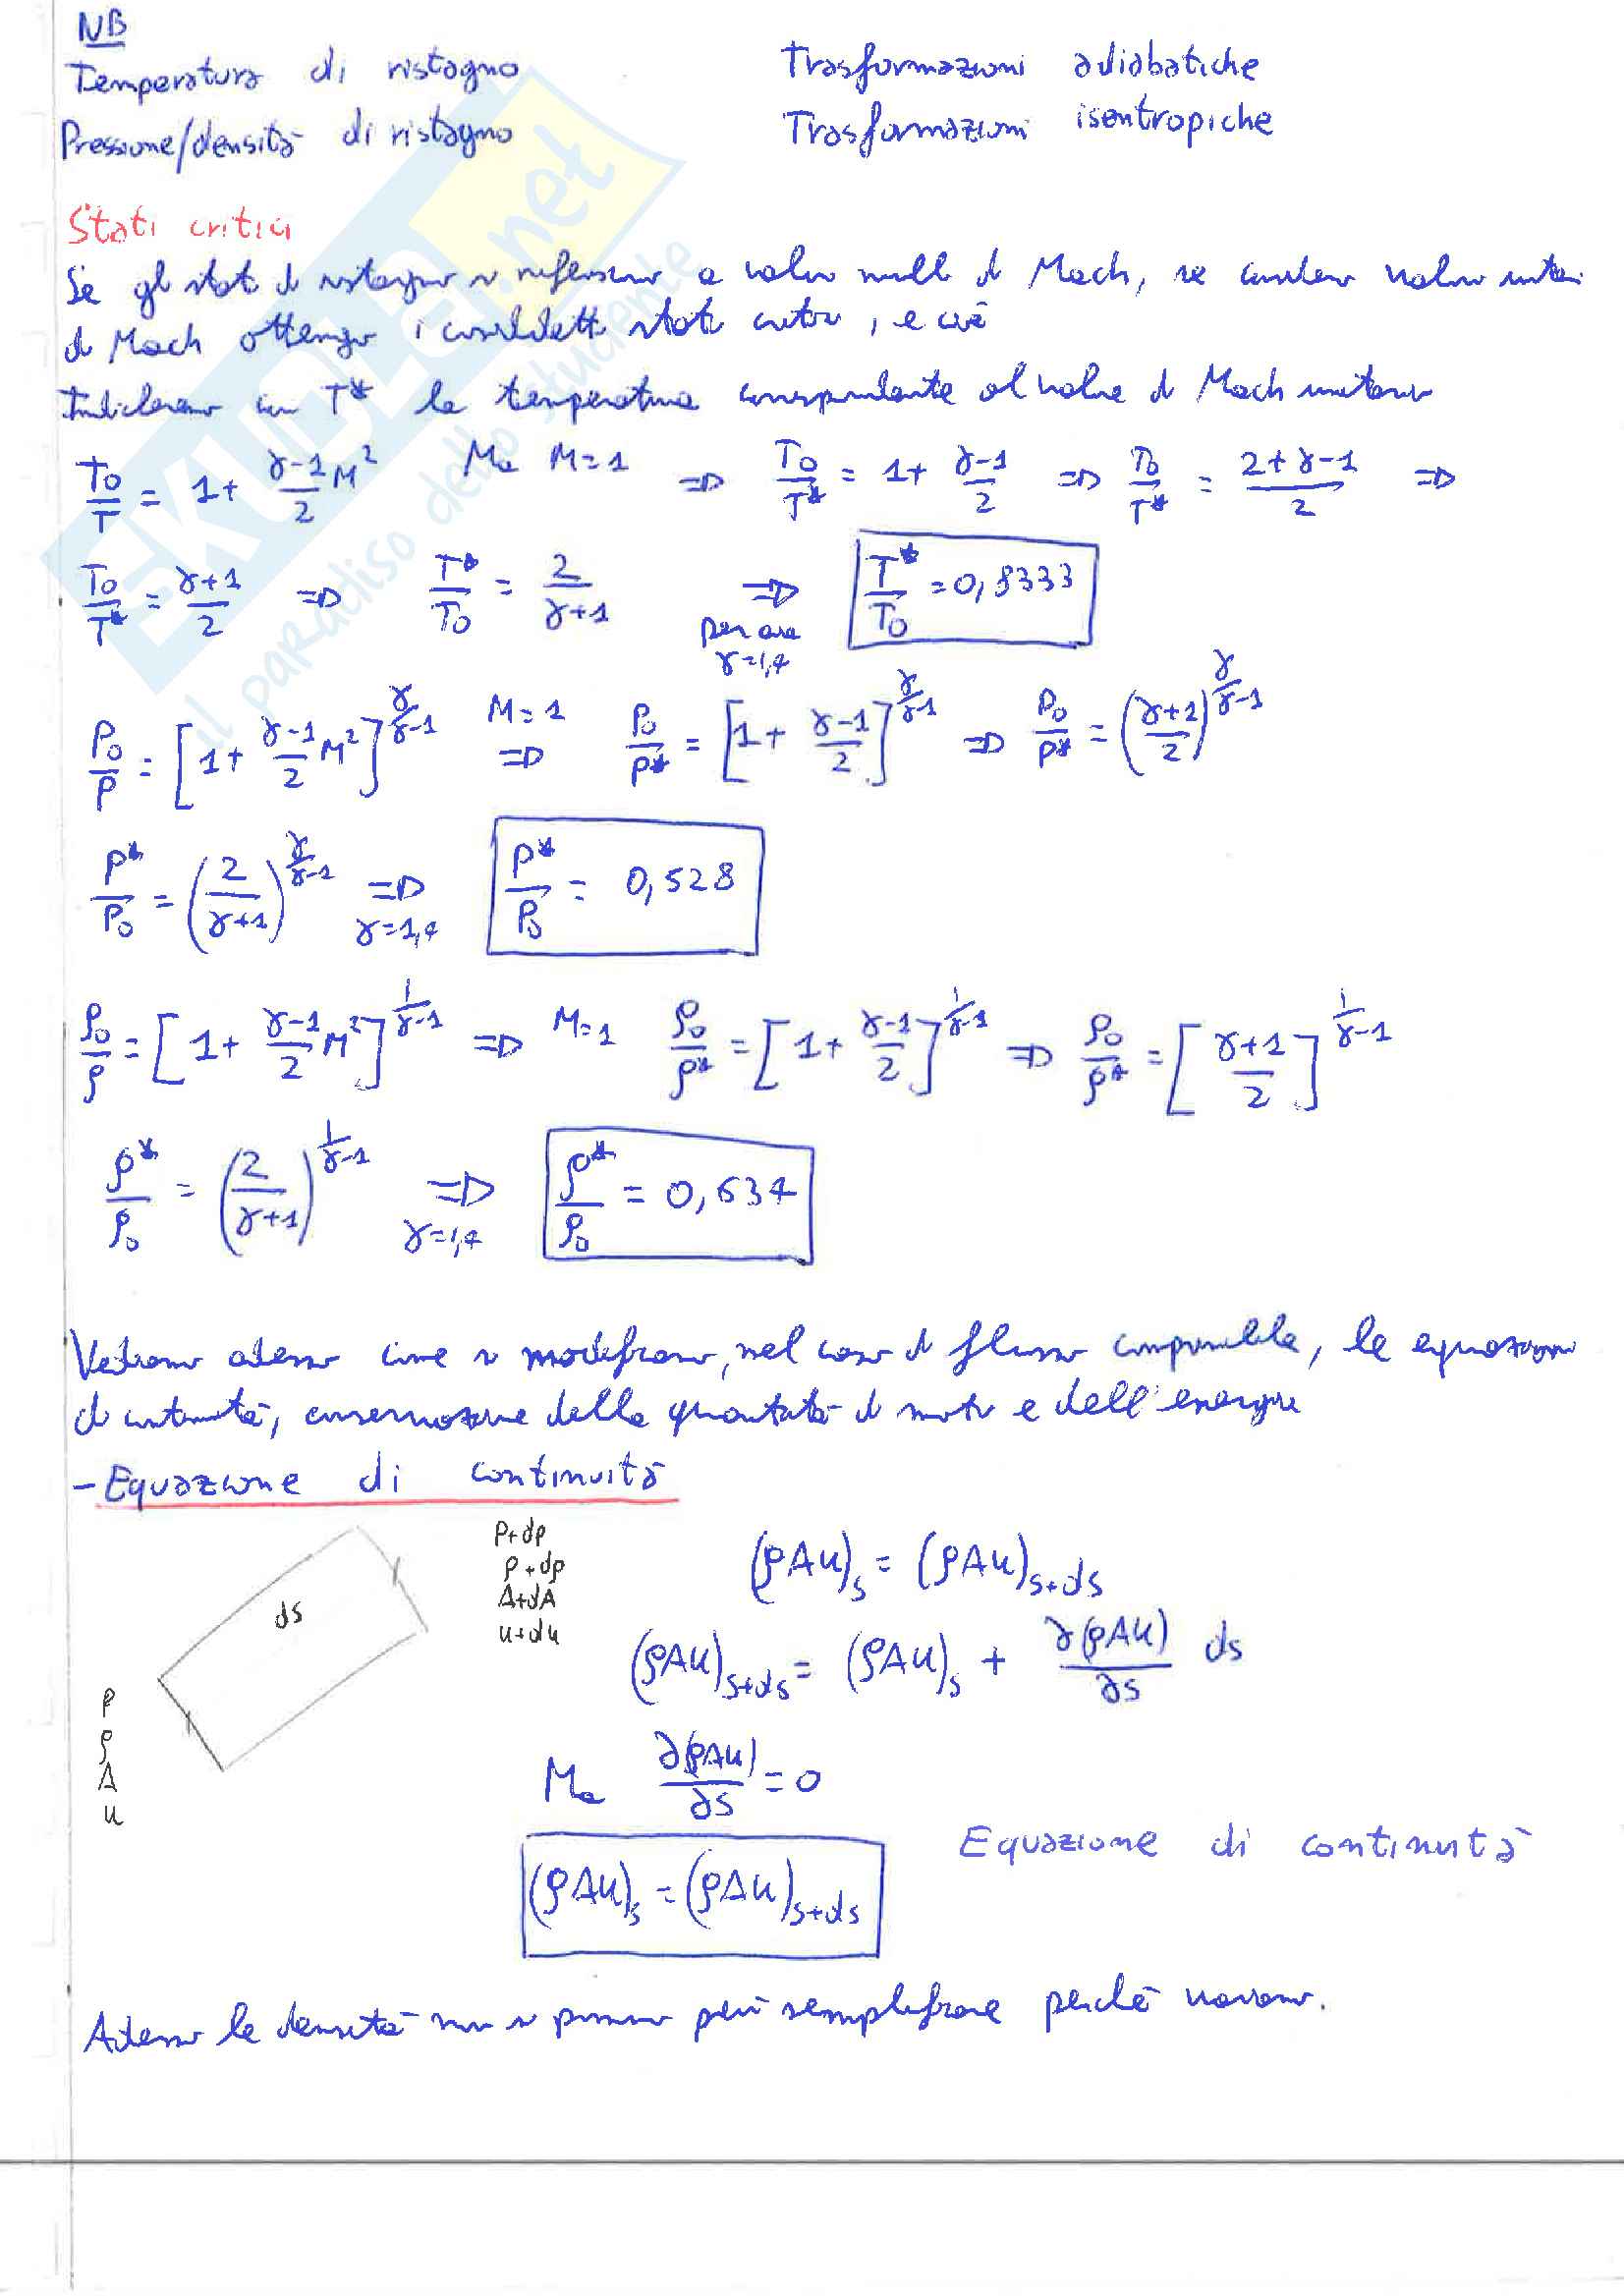 NB
Temperatura di ristagno Trasformazioni adiabatiche
Pressione/densità di ristagno Trasformazioni isentropiche
Stati critici
Se gli stati di ristagno si riferiscono a valori nulli di Mach, se considero valori unitari
di Mach ottengo i cosiddetti stati critici, e cioè
Indicheremo con T* la temperatura corrispondente al valore di Mach unitario
T0/T = 1 + (γ-1)/2 M² Ma M=1 => T0/T* = 1 + (γ-1)/2 => T0/T* = (2+γ-1)/2 =>
T0/T* = (γ+1)/2 => T*/T0 = 2/(γ+1) => per aria γ=1,4 T*/T0 = 0,8333
P0/P = [1 + (γ-1)/2 M²]^(γ/(γ-1)) M=1 => P0/P* = [1 + (γ-1)/2]^(γ/(γ-1)) => P0/P* = ((γ+1)/2)^(γ/(γ-1))
P*/P0 = (2/(γ+1))^(γ/(γ-1)) => γ=1,4 P*/P0 = 0,528
ρ0/ρ = [1 + (γ-1)/2 M²]^(1/(γ-1)) => M=1 ρ0/ρ* = [1 + (γ-1)/2]^(1/(γ-1)) => ρ0/ρ* = [(γ+1)/2]^(1/(γ-1))
ρ*/ρ0 = (2/(γ+1))^(1/(γ-1)) => γ=1,4 ρ*/ρ0 = 0,634
Vediamo adesso come si modificano, nel caso di flusso comprimibile, le equazioni
di continuità, conservazione della quantità di moto e dell'energia
- Equazione di continuità
P+dp
ρ+dρ
A+dA
u+du
ds
P
ρ
A
u
(ρAu)s = (ρAu)s+ds
(ρAu)s+ds = (ρAu)s + ∂(ρAu)/∂s ds
Ma ∂(ρAu)/∂s = 0
(ρAu)s = (ρAu)s+ds Equazione di continuità
Adesso le densità non si possono più semplificare perché variano.
SKUOLA.net
il paradiso dello studente